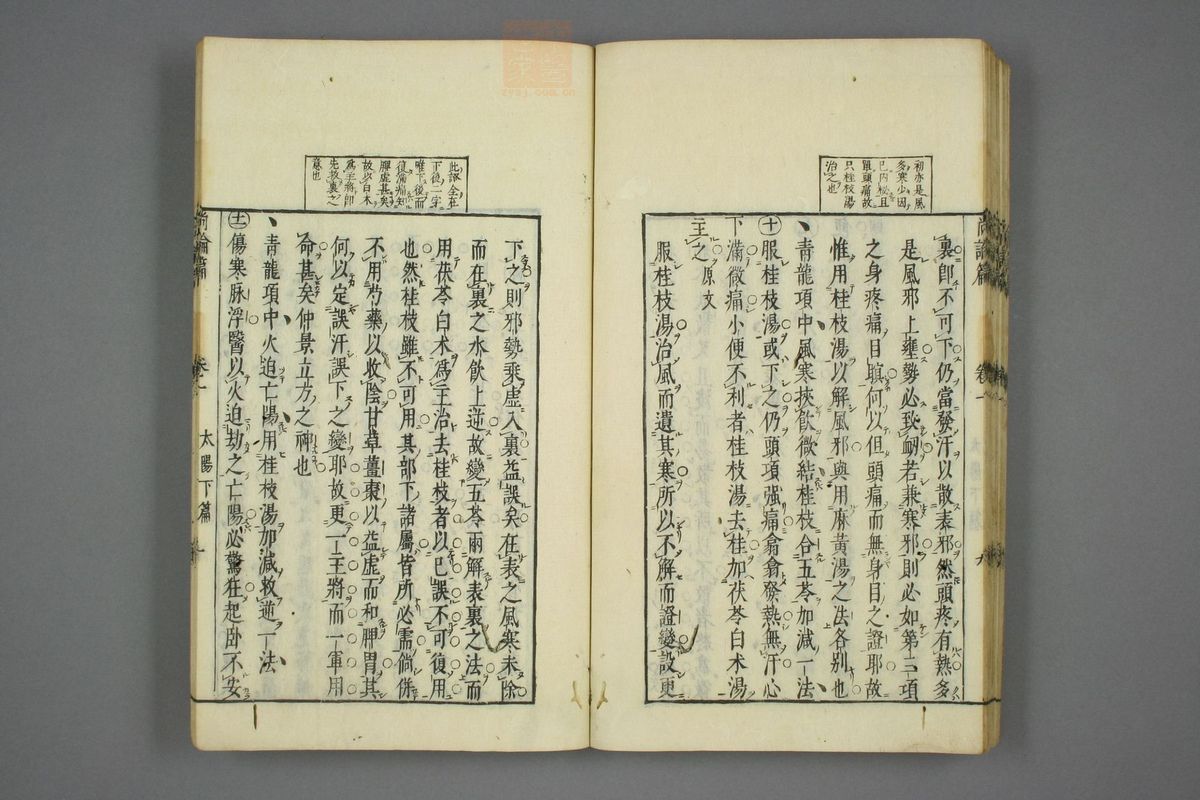 初亦是風
多寒少因
已內松且
單頭痛故
只桂枝湯
治之也
裏卽不可下仍當發汗以散表邪然頭疼有熱多
是風邪上壅勢必致衂若兼寒邪則必如第三項
之身疼痛目瞋何以但頭痛而無身目之證耶故
惟用桂枝湯以解風邪與用麻黃湯之法各別也
青龍項中風寒挾飮微結桂枝合五苓加減一法
十 服桂枝湯或下之仍頭項强痛翕翕發熱無汗心
下滿微痛小便不利者桂枝湯去桂加茯苓白朮湯
主之 原文
服桂枝湯治風而遺其寒所以不解而證變設更
此證全在
下後二字
唯下後而
復滿痛知
脾虛甚矣
故以白朮
爲主將卽
先救裏之
意也
下之則邪勢乘虛入裏益誤矣在表之風寒未除
而在裏之水飮上逆故變五苓兩解表裏之法而
用茯苓白朮爲主治去桂枝者以已誤不可復用
也然桂枝雖不可用其部下諸屬皆所必需倘併
不用芍藥以收陰甘草薑棗以益虛而和脾胃其
何以定誤汗誤下之變耶故更一主將而一軍用
命甚矣仲景立方之神也
青龍項中火迫亡陽用桂枝湯加減救逆一法
十一 傷寒脉浮醫以火迫劫之亡陽必驚狂起臥不安
尚論篇 卷一 太陽下篇